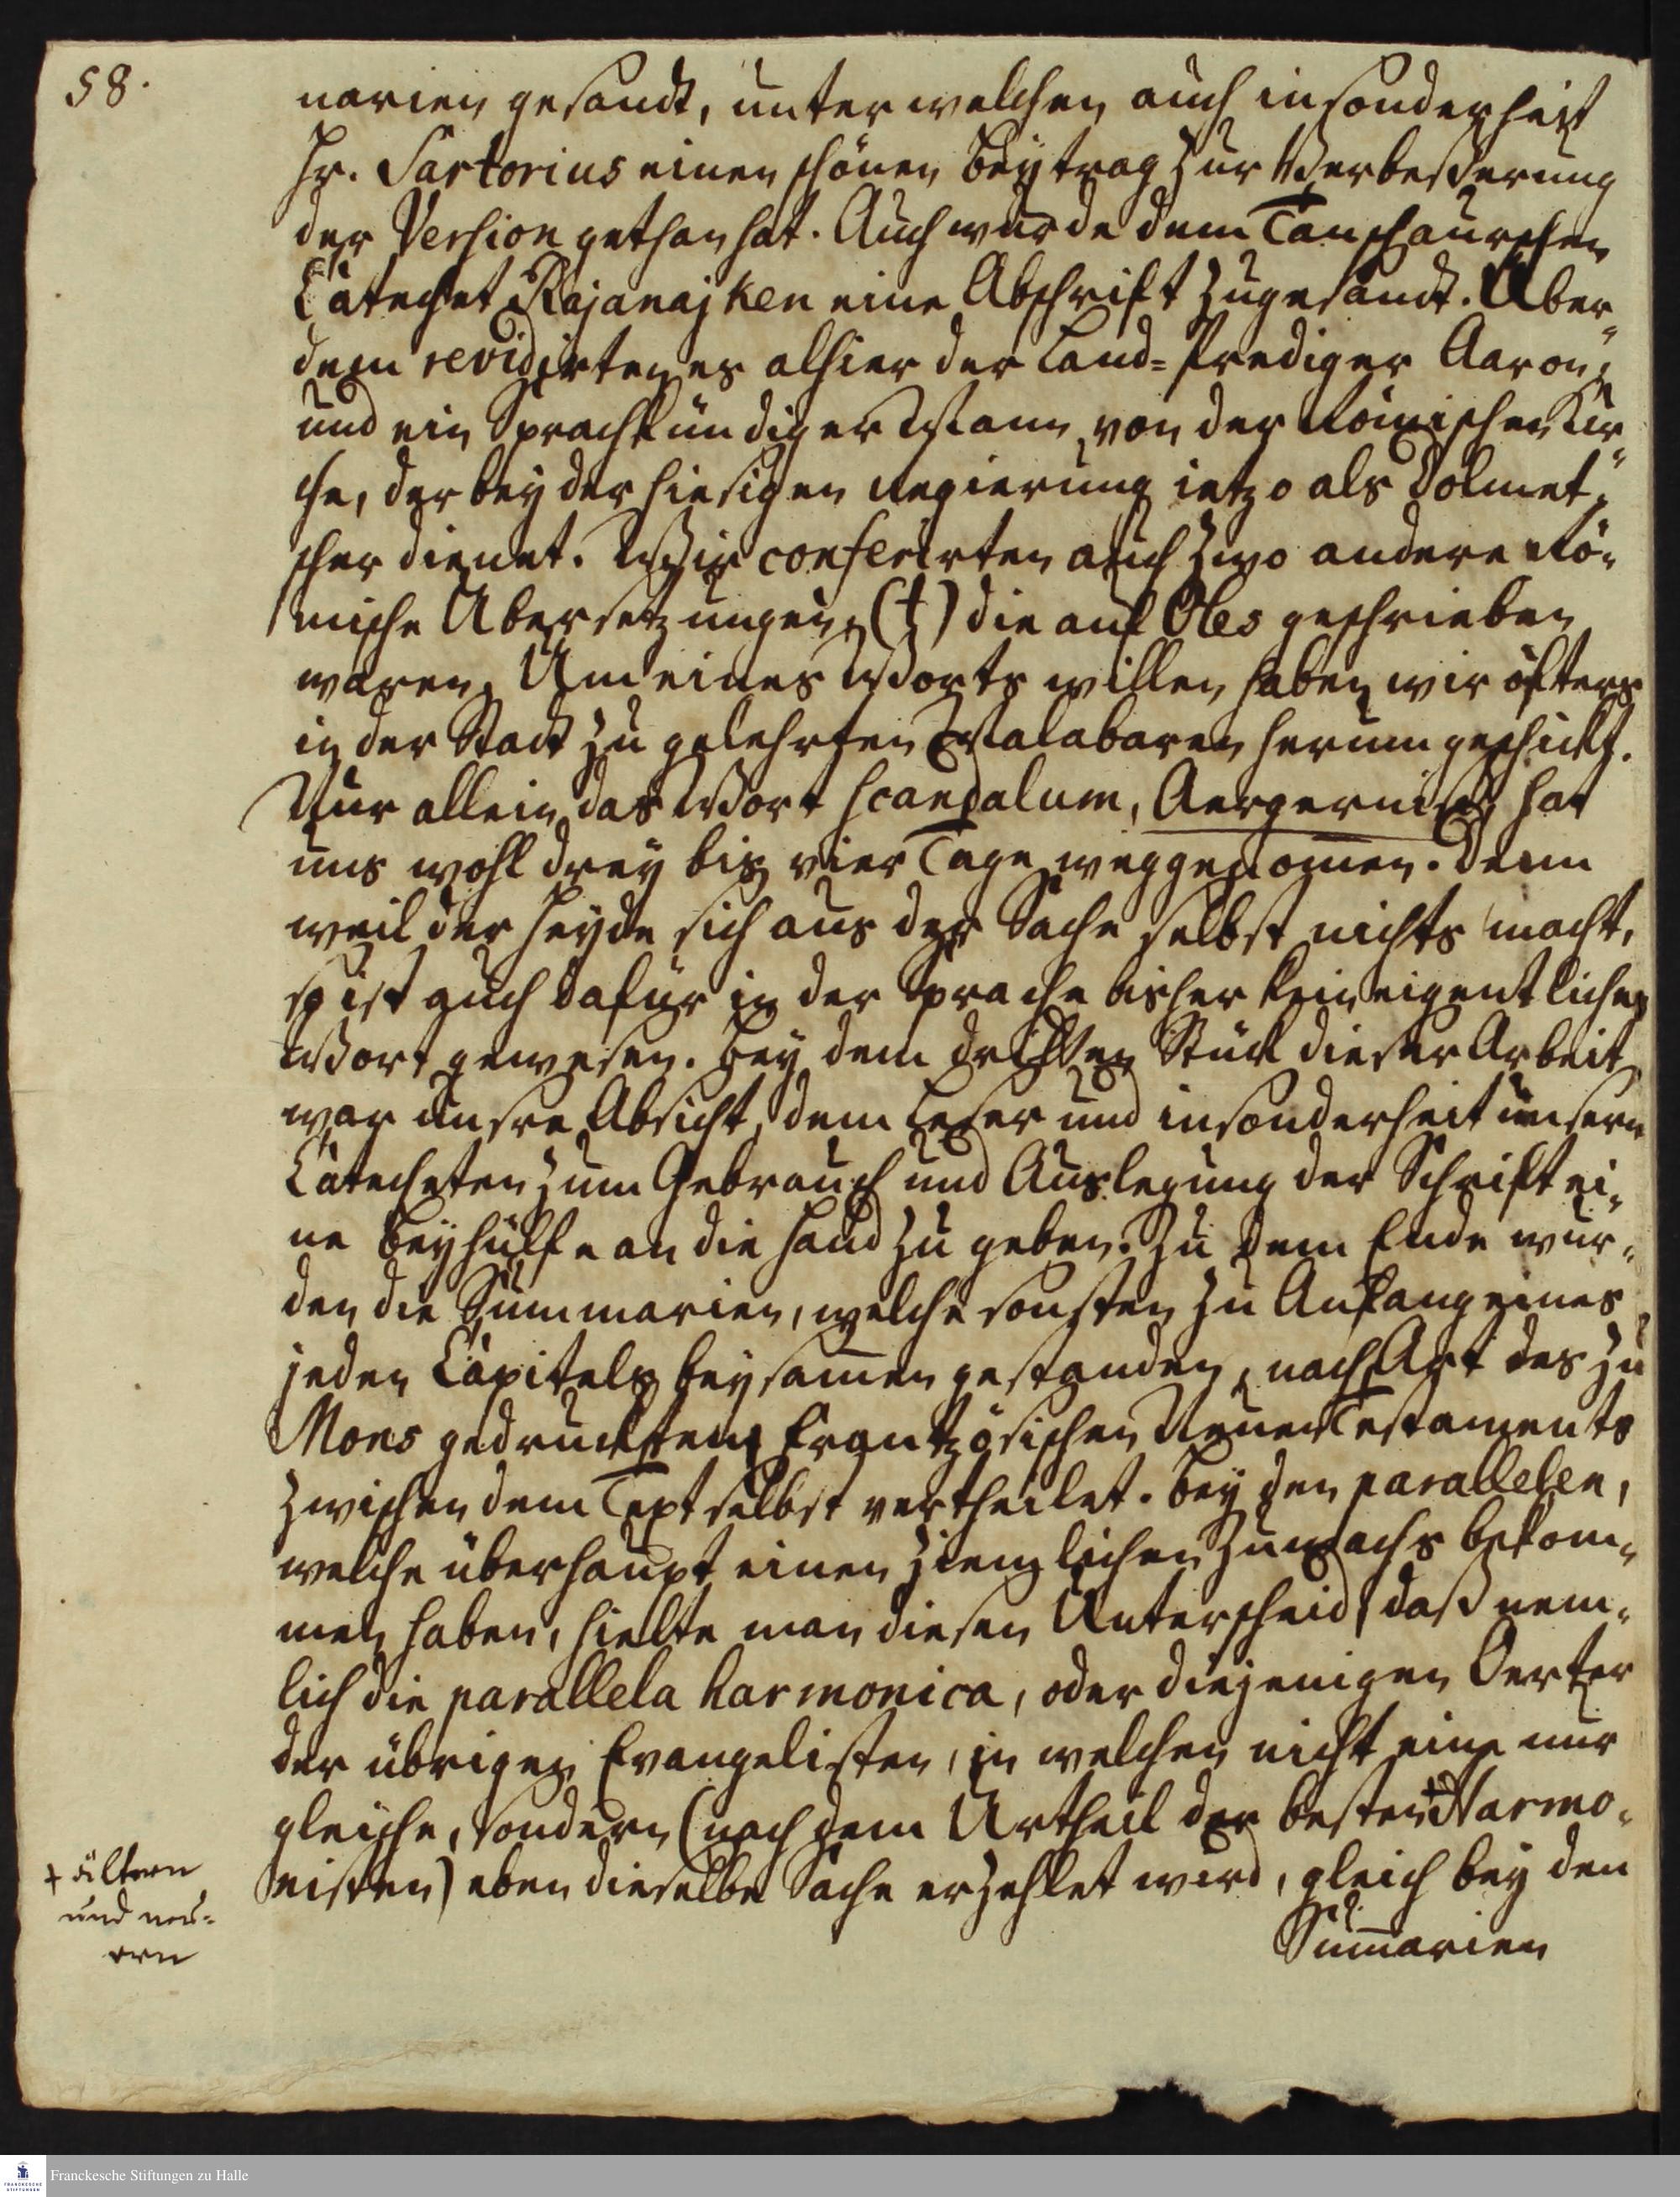 58.
narien gesandt, unter welchen auch insonderheit
Hr. Sartorius einen schönen Beytrag zur Verbeßerung
der Version gethan hat. Auch wurde dem Tanschaurschen
Catechet Rajanajken eine Abschrift zugesandt. Über„
dem revidirten es alhier der Land-Prediger Aaron,
und ein Sprachkündiger Mann von der Römischen Kir„
che, der bey der hiesigen Regierung ietzo als Dolmet„
scher dienet. Wir conferirten auch zwo andere Rö„
mische Übersetzungen, (†) die auf Oles geschrieben
waren. Um eines Worts willen haben wir öfters
in der Stadt zu gelehrten Malabaren herum geschickt.
Nur allein das Wort scandalum, Aergerniß, hat
uns wohl drey bis vier Tage weggenom̄en. Denn
weil der Heyde sich aus der Sache selbst nichts macht,
so ist auch dafür in der Sprache bisher kein eigentliches
Wort gewesen. Bey dem dritten Stück dieser Arbeit
war unsre Absicht, dem Leser und insonderheit unsern
Catecheten zum Gebrauch und Auslegung der Schrift ei„
ne Beyhülfe an die Hand zu geben. Zu dem Ende wur„
den die Summarien, welche sonsten zu Anfang eines
jeden Capitels beysam̄en gestanden, nach Art des zu
Mons gedruckten Frantzösischen Neuen Testaments
zwischen dem Text selbst vertheilet. Bey den parallelen,
welche überhaupt einen ziemlichen Zuwachs bekom„
men haben, hielte man diesen Unterscheid, daß nem„
lich die parallela harmonica, oder diejenigen Oerter
der übrigen Evangelisten, in welchen nicht eine nur
gleiche, sondern (nach dem Urtheil der besten † Harmo„
nisten) eben dieselbe Sache erzehlet wird, gleich bey den
† ältern
und neu-
ern
Sum̄arien
Franckesche Stiftungen zu Halle